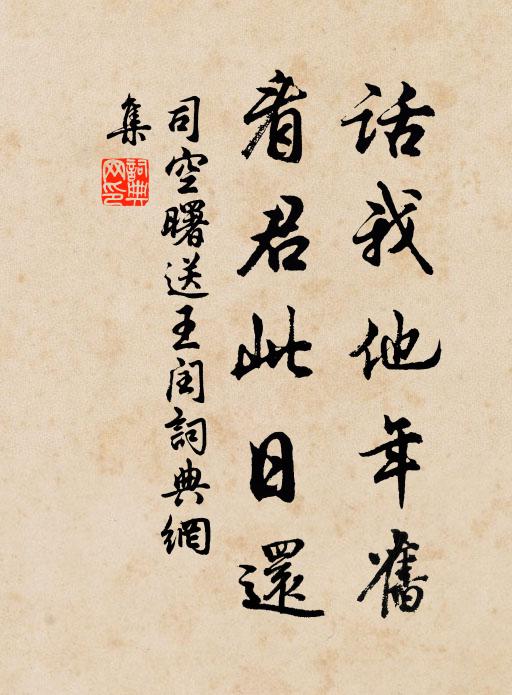 話我他年舊
看君此日還
司空曙送王閏詞典網
集
詞典
网印